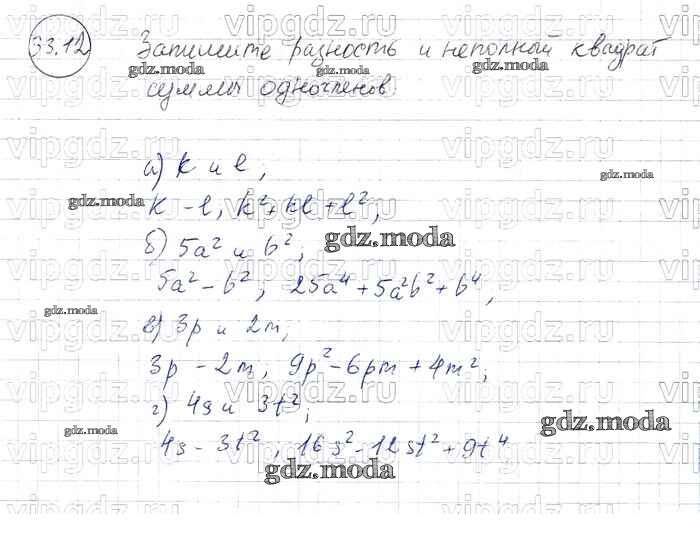 33.12 Запишите разность и неполный квадрат
суммы одночленов
а) k и l;
k - l, k² + kl + l²;
б) 5a² и b²;
5a² - b²; 25a⁴ + 5a²b² + b⁴,
в) 3p и 2m;
3p - 2m; 9p² - 6pm + 4m²;
г) 4s и 3t²;
4s - 3t², 16s² - 12st² + 9t⁴
vipgdz.ru
gdz.moda